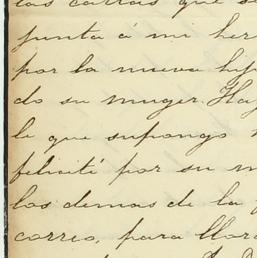 las cartas que se
junta á mi her
por la nueva hip
do su muger. Hag
le que supongo
felicité por su m
los demas de la
correo, para llora